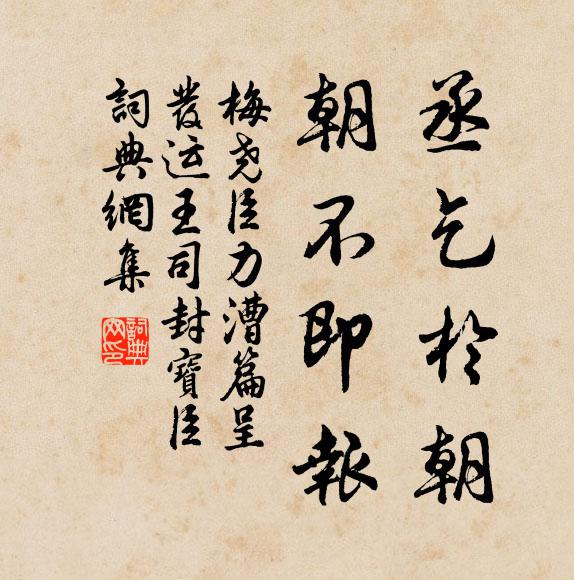 丞乞於朝
朝不即報
梅尧臣力漕篇呈
發运王司封寶臣
詞典網集
詞典網印